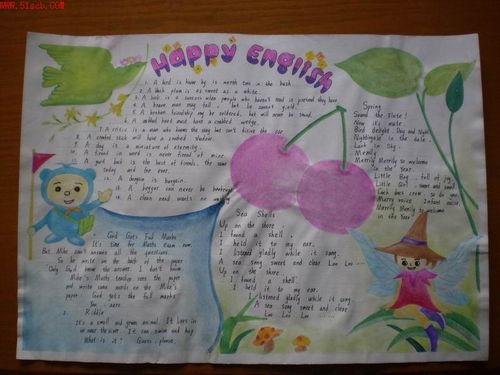 www.51scb.com
Happy English
1. A bird in hand is worth two in the bush.
2. A black plum is as sweet as a white.
A book is a success when people who haven't read it pretend they have
A brave man may fall, but he cannot yield.
A broken friendship may be soldered, but will never be sound.
6. A cobbled world need have a cobbled wedge.
7. A critic is a man who knows the way but can't drive the car.
8. A crooked stick will have a crooked shadow.
9. A day is a miniature of eternity.
10. A friend in word is never friend of mine.
11. A good book is the best of friends, the same
today and for ever.
12. A bargain is bargain.
A beggar can never be bankrupt
14. A clean hand wants no washing
Spring
Sound the flute!
Now it's mute.
Bird delight Day and Night
Nightingale in the dale.
Lark in Sky.
Merrily
Merrily Merrily to welcome
in the Year.
Little Boy, full of joy.
Little Girl, sweet and small
Cock does crow, so do you.
Merry voice, Infant noise,
Merrily Merrily to welcome
in the Year
Sea Shells
Up on the shore
I found a shell.
I held it to my ear.
I listened gladly while it sang.
A sea song sweet and clear Loo Loo
Up on the shore.
I found a shell
I held it to my ear.
I listened gladly while it sang
A sea song sweet and clear
Loo . Loo . Loo
1. God Gets Full Marks
It's time for Maths exam now.
But Mike can't answer all the questions.
So he write in the back of the paper
Only God know the answer. I don't know
Mike's Maths teacher sees the paper
and write some words on the Mike's
paper. God gets the full marks
zero
2. Riddle
It's a small and green animal. It lives in
or near the river. It can swim and hop.
What is it? Guess, please.